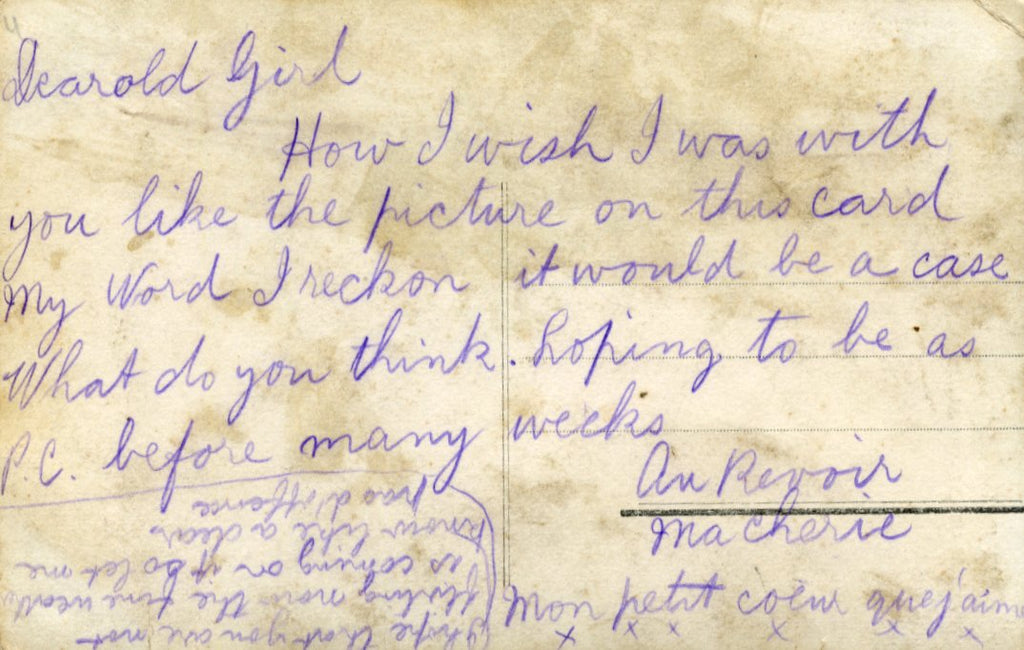 Dear old Girl
How I wish I was with
you like the picture on this card
My Word I reckon it would be a case
What do you think. hoping to be as
P.C. before many weeks
Au Revoir
Ma cherie
Mon petit coeur que j'aim
x x x x x x
I hope that you are not
flirting now the fine weathe
is coming on if so let me
know like a dear
pas d'offence